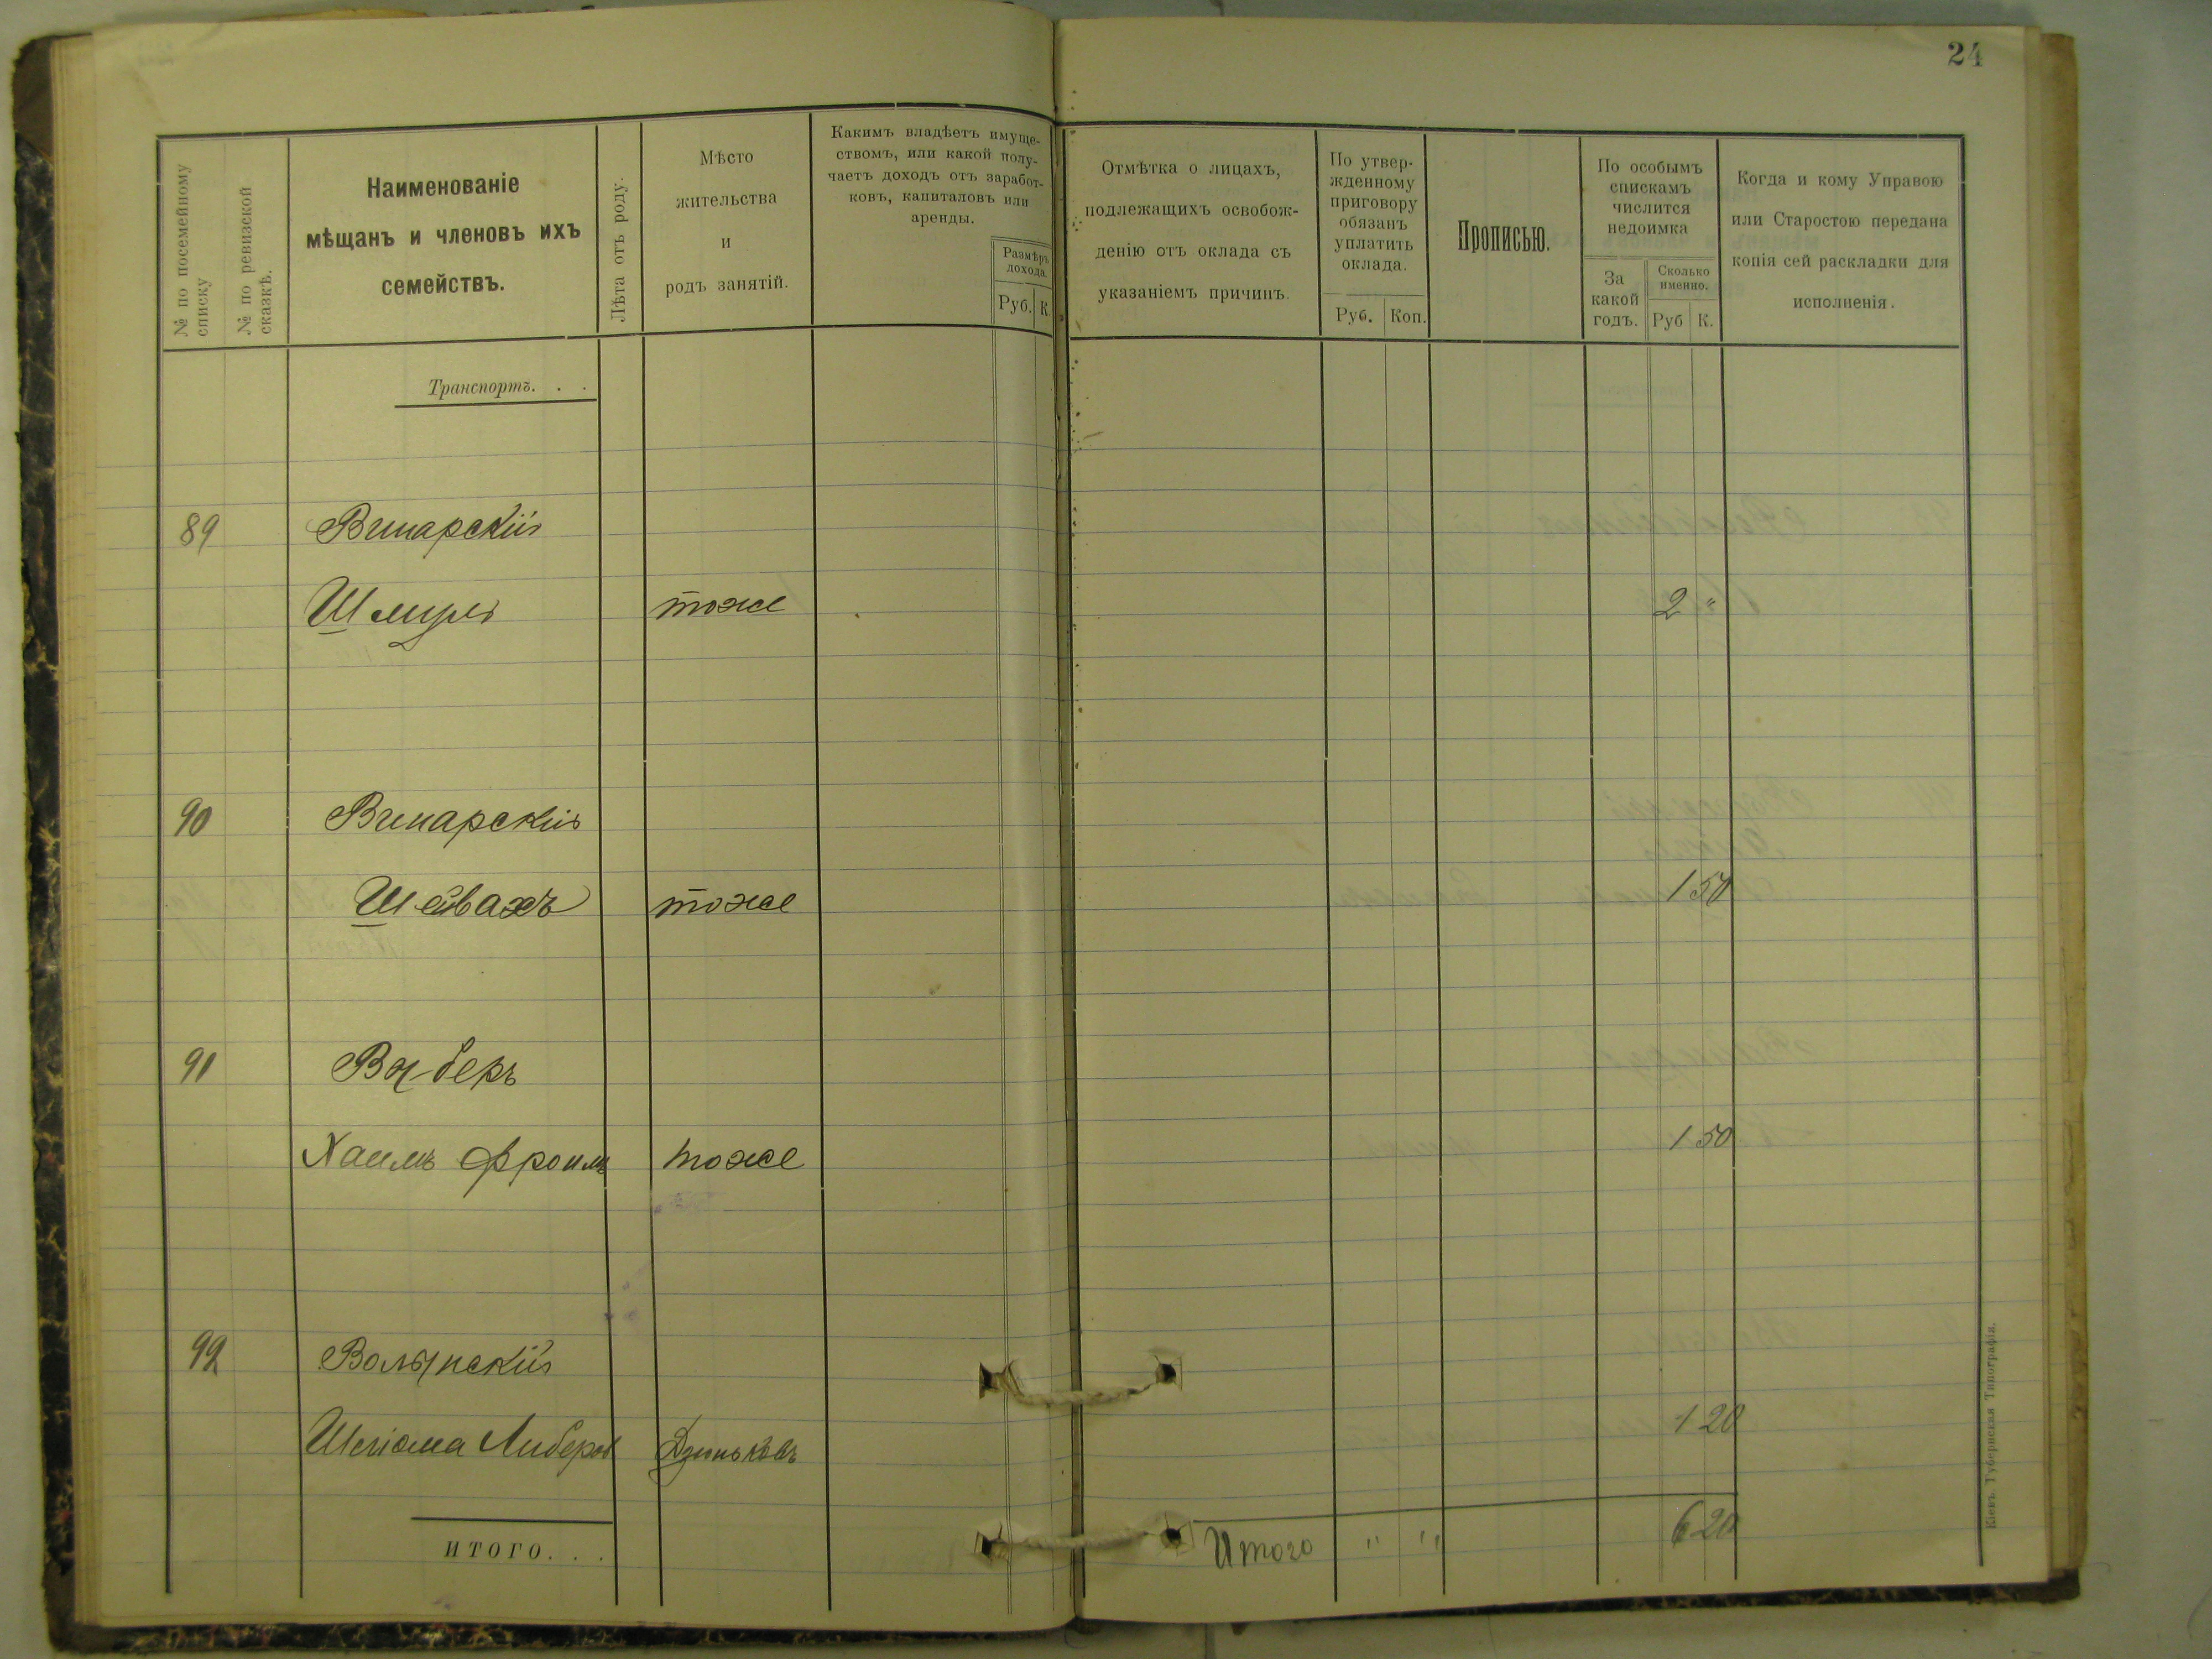 24
№ по посемейному
списку
№ по ревизской
сказкѣ.
Наименованіе
мѣщанъ и членовъ ихъ
семействъ.
Лѣта отъ роду.
Мѣсто
жительства
и
родъ занятій.
Какимъ владѣетъ имуще-
ствомъ, или какой полу-
чаетъ доходъ отъ заработ-
ковъ, капиталовъ или
аренды.
Размѣръ
дохода.
Руб. К.
Отмѣтка о лицахъ,
подлежащихъ освобож-
денію отъ оклада съ
указаніемъ причинъ.
По утвер-
жденному
приговору
обязанъ
уплатить
оклада.
Руб. Коп.
Прописью.
По особымъ
спискамъ
числится
недоимка
За
какой
годъ.
Сколько
именно.
Руб К.
Когда и кому Управою
или Старостою передана
копія сей раскладки для
исполненія.
Транспортъ. . .
89 Винарскій
Шмуль тоже 2 "
90 Винарскій
Шейвахъ тоже 1 50
91
Хаимъ Фроимъ тоже 1 50
92 Волынскій
Шліома Либеров Дзиньковъ 1 20
ИТОГО. . .
Итого " " 6 20
Кіевъ. Губернская Типографія.